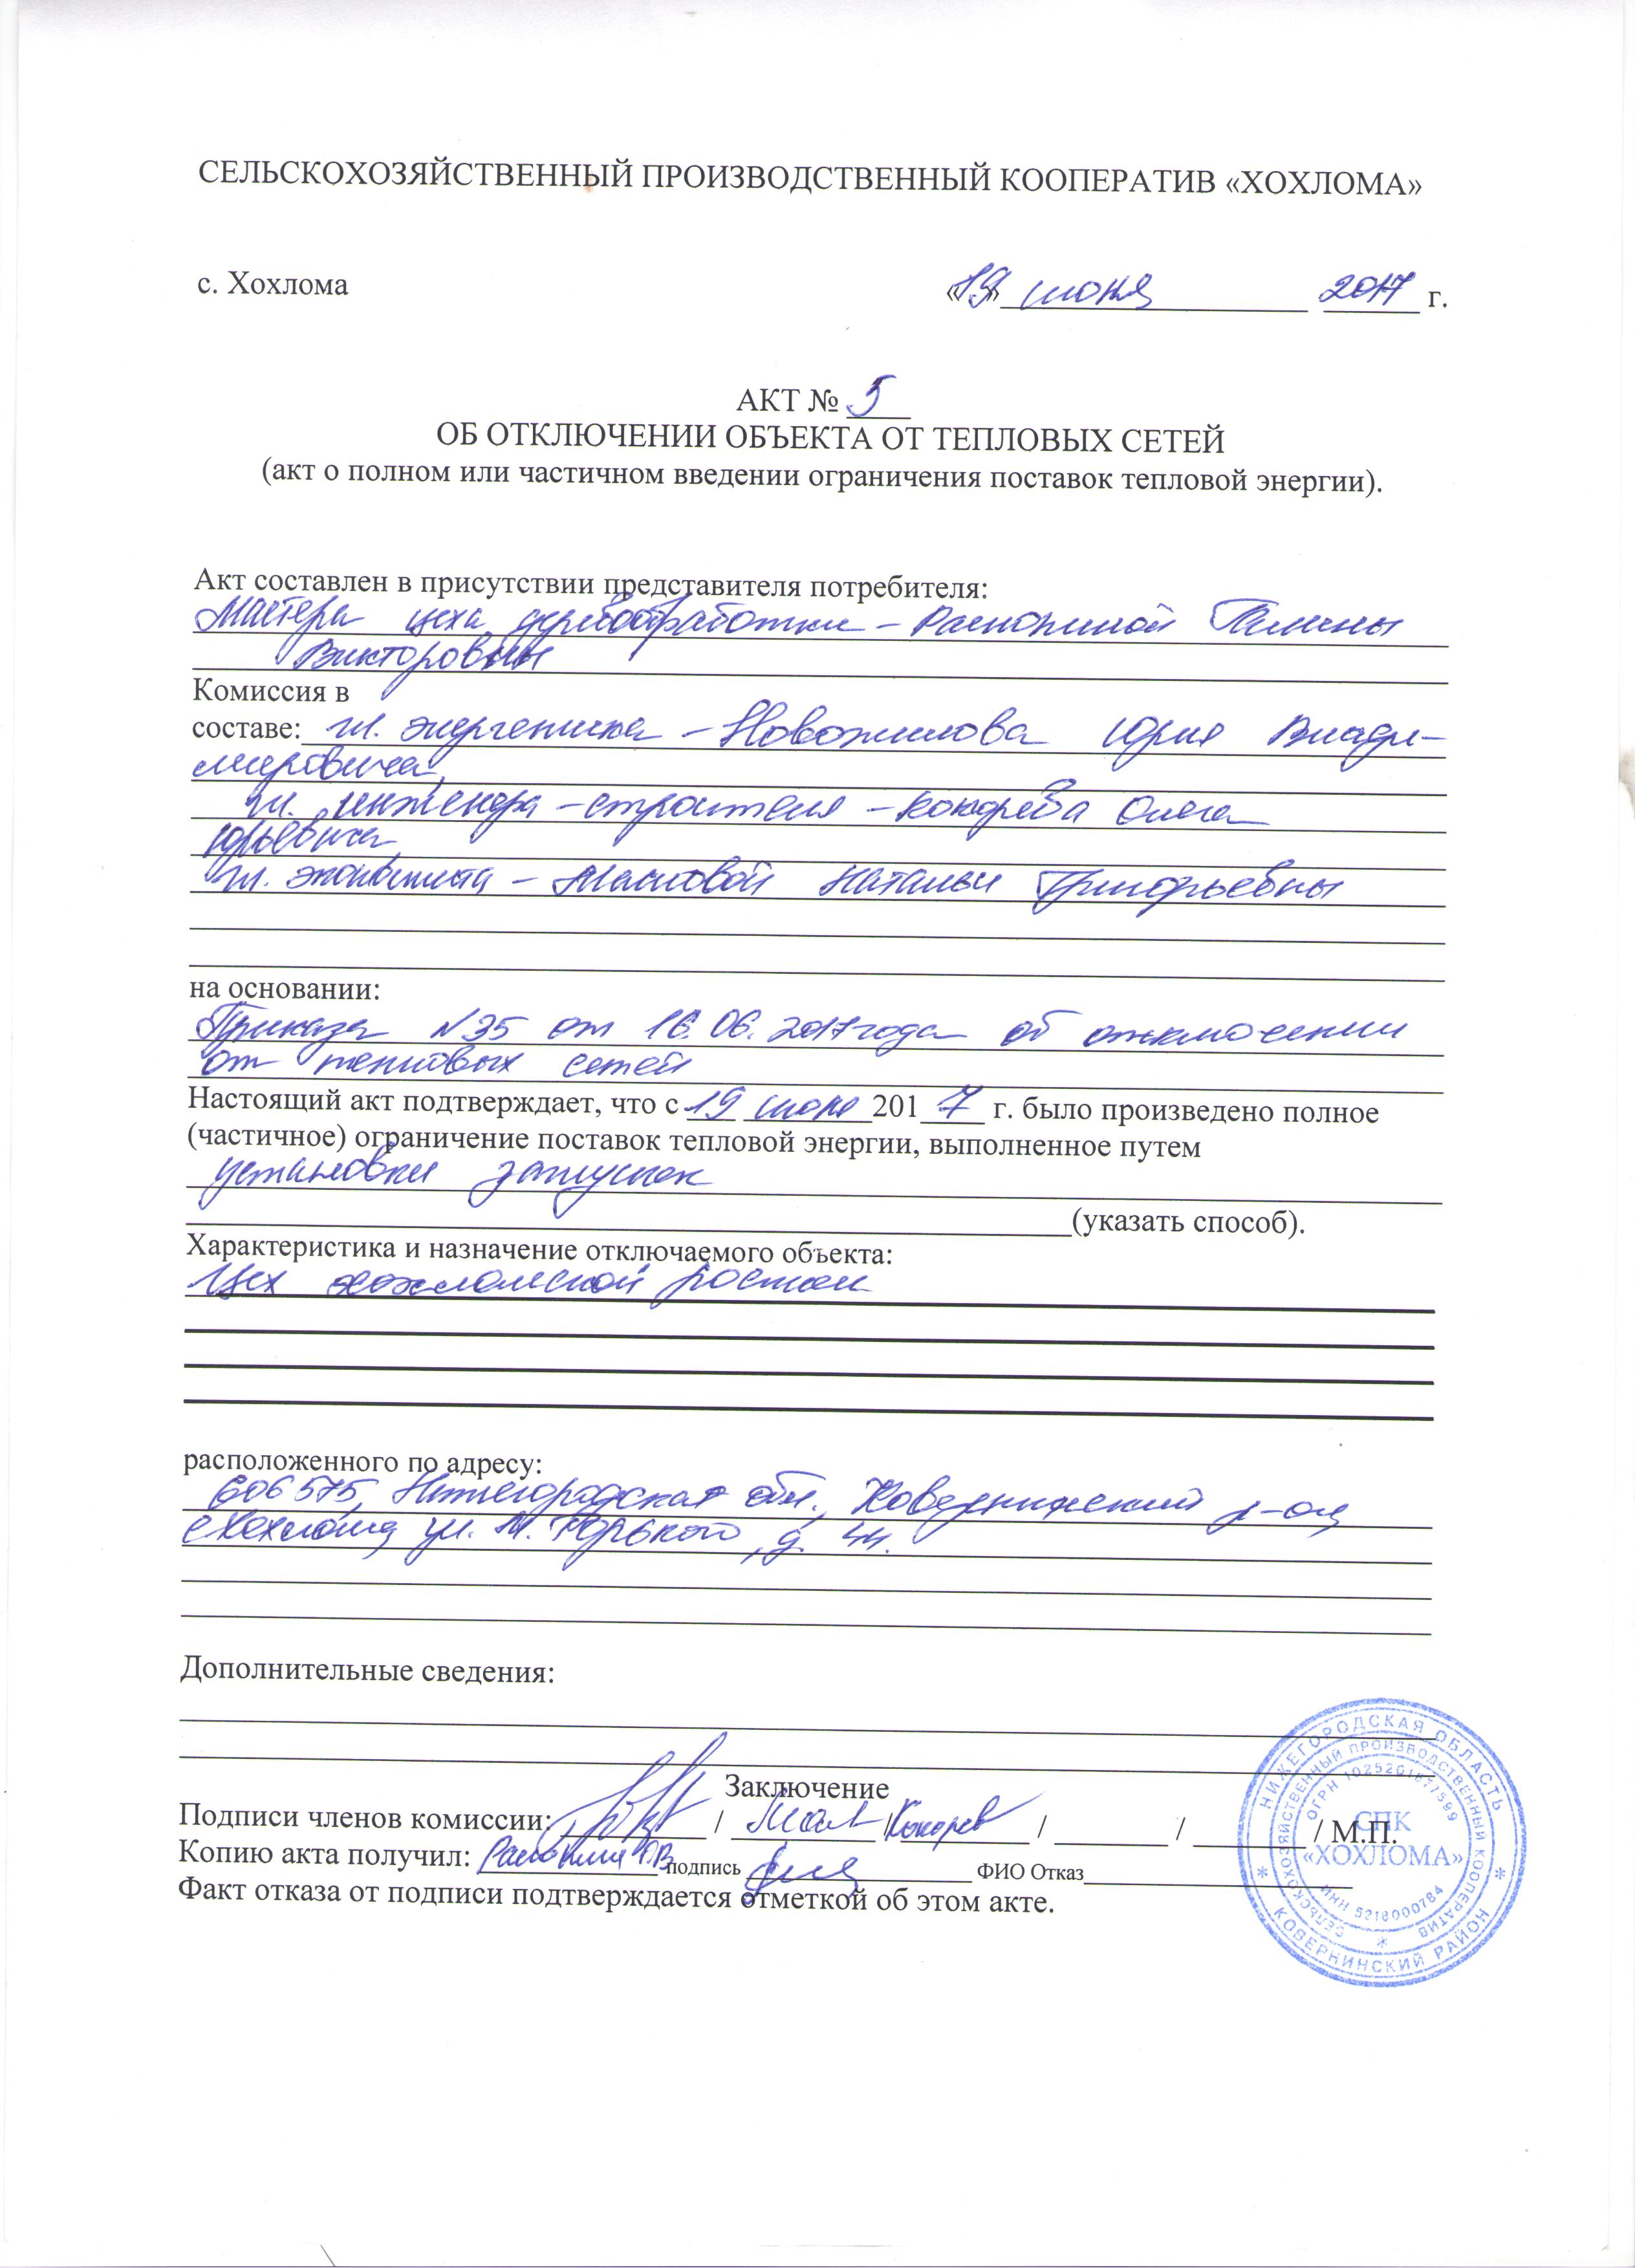 СЕЛЬСКОХОЗЯЙСТВЕННЫЙ ПРОИЗВОДСТВЕННЫЙ КООПЕРАТИВ «ХОХЛОМА»
с. Хохлома «19» июня 2017 г.
АКТ № 5
ОБ ОТКЛЮЧЕНИИ ОБЪЕКТА ОТ ТЕПЛОВЫХ СЕТЕЙ
(акт о полном или частичном введении ограничения поставок тепловой энергии).
Акт составлен в присутствии представителя потребителя:
Мастера цеха деревообработки – Галины
Викторовны
Комиссия в
составе: гл. энергетика – Новожилова Юрия Влади-
мировича,
гл. инженера – строителя – Кокорева Олега
Юрьевича,
гл. экономиста – Масловой Натальи Григорьевны
на основании:
Приказа №35 от 16.06.2017 года об отключении
от тепловых сетей
Настоящий акт подтверждает, что с 19 июня 2017 г. было произведено полное
(частичное) ограничение поставок тепловой энергии, выполненное путем
установки заглушек
(указать способ).
Характеристика и назначение отключаемого объекта:
Цех хохломской росписи
расположенного по адресу:
606575, Нижегородская обл., Ковернинский р-он,
с Хохлома ул. М. Горького, д. 44.
Дополнительные сведения:
Заключение
Подписи членов комиссии: / / Кокорев / / / М.П.
Копию акта получил: подпись ФИО Отказ
Факт отказа от подписи подтверждается отметкой об этом акте.
НИЖЕГОРОДСКАЯ ОБЛАСТЬ
КОВЕРНИНСКИЙ РАЙОН
СЕЛЬСКОХОЗЯЙСТВЕННЫЙ ПРОИЗВОДСТВЕННЫЙ КООПЕРАТИВ
ИНН 5218000784
СПК
«ХОХЛОМА»